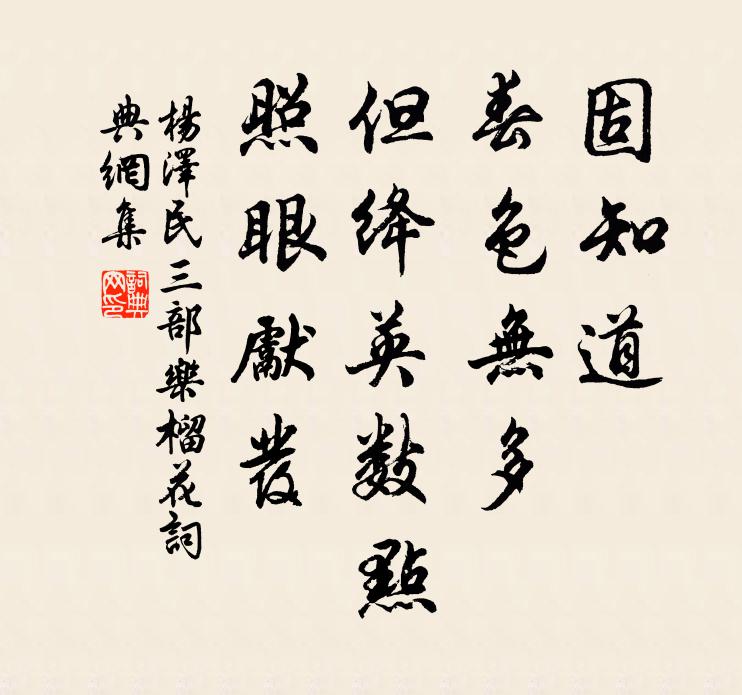 固知道
春色無多
但绛英数點
照眼獻發
楊澤民三部樂榴花詞
典網集
詞典網印